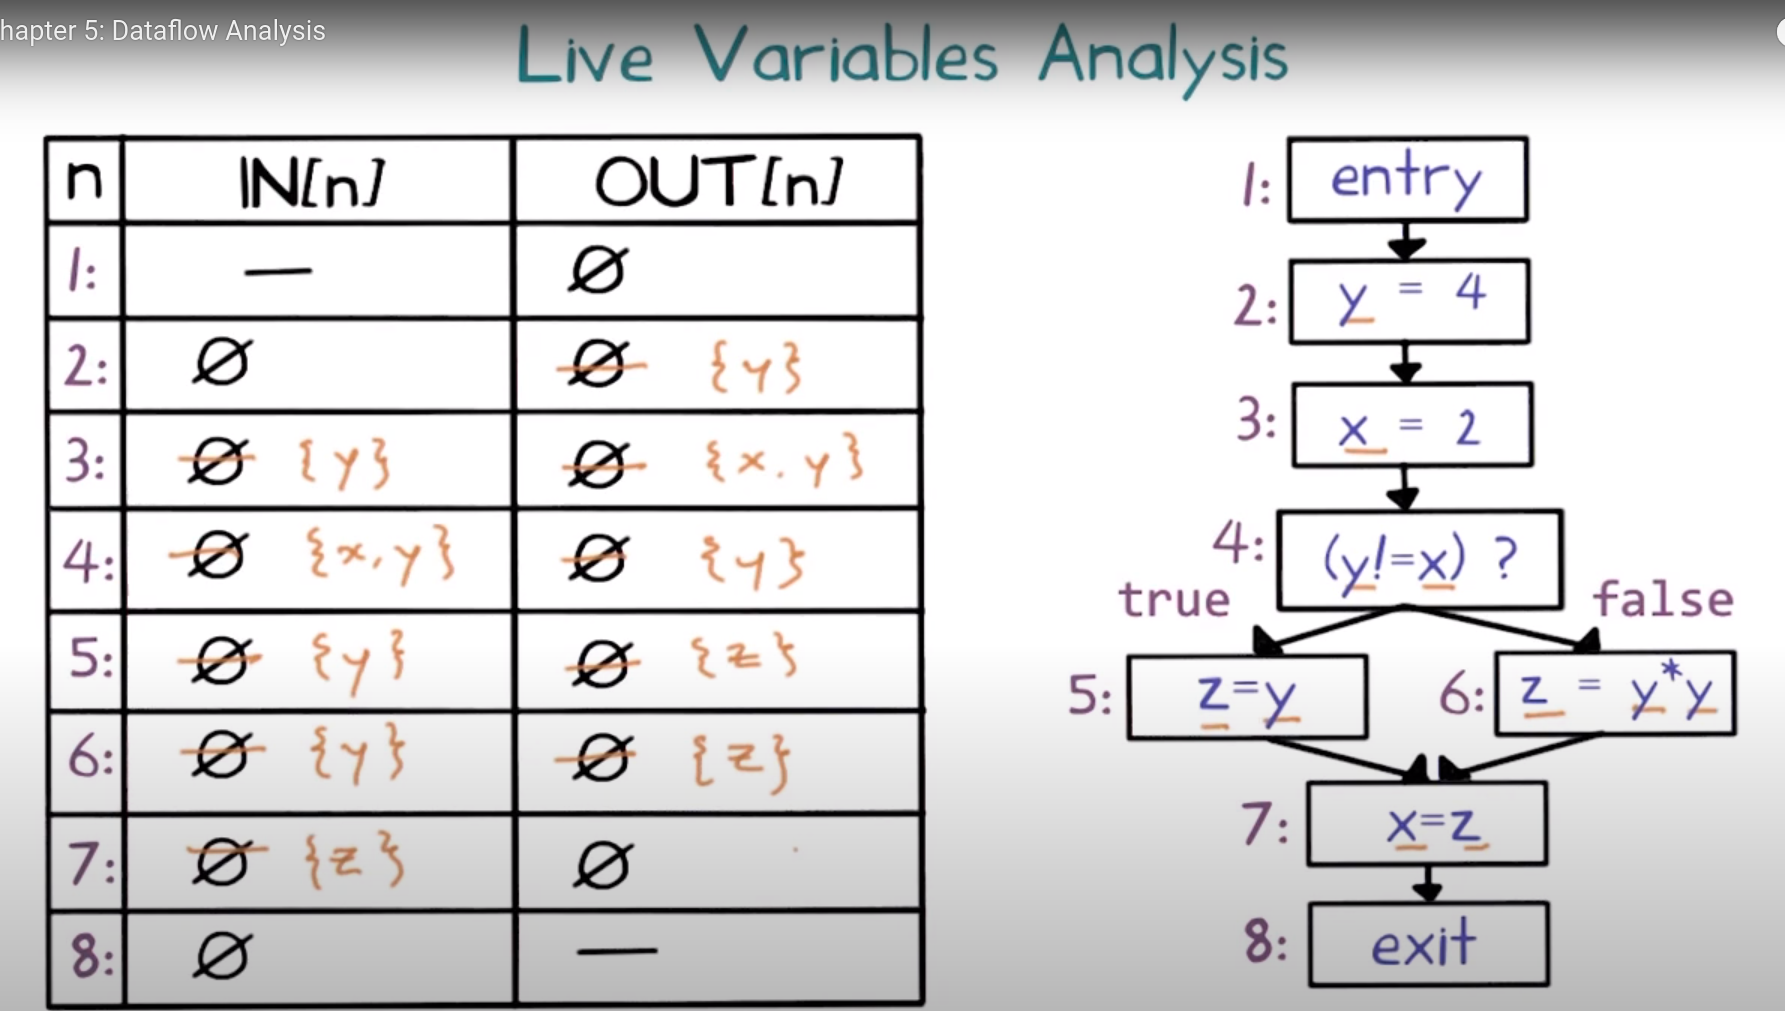 hapter 5: Dataflow Analysis
Live Variables Analysis
n IN[n] OUT[n]
1: — ∅
2: ∅ ∅ {y}
3: ∅ {y} ∅ {x.y}
4: ∅ {x,y} ∅ {y}
5: ∅ {y} ∅ {z}
6: ∅ {y} ∅ {z}
7: ∅ {z} ∅
8: ∅ —
1: entry
2: y = 4
3: x = 2
4: (y!=x) ?
true false
5: z=y 6: z = y*y
7: x=z
8: exit